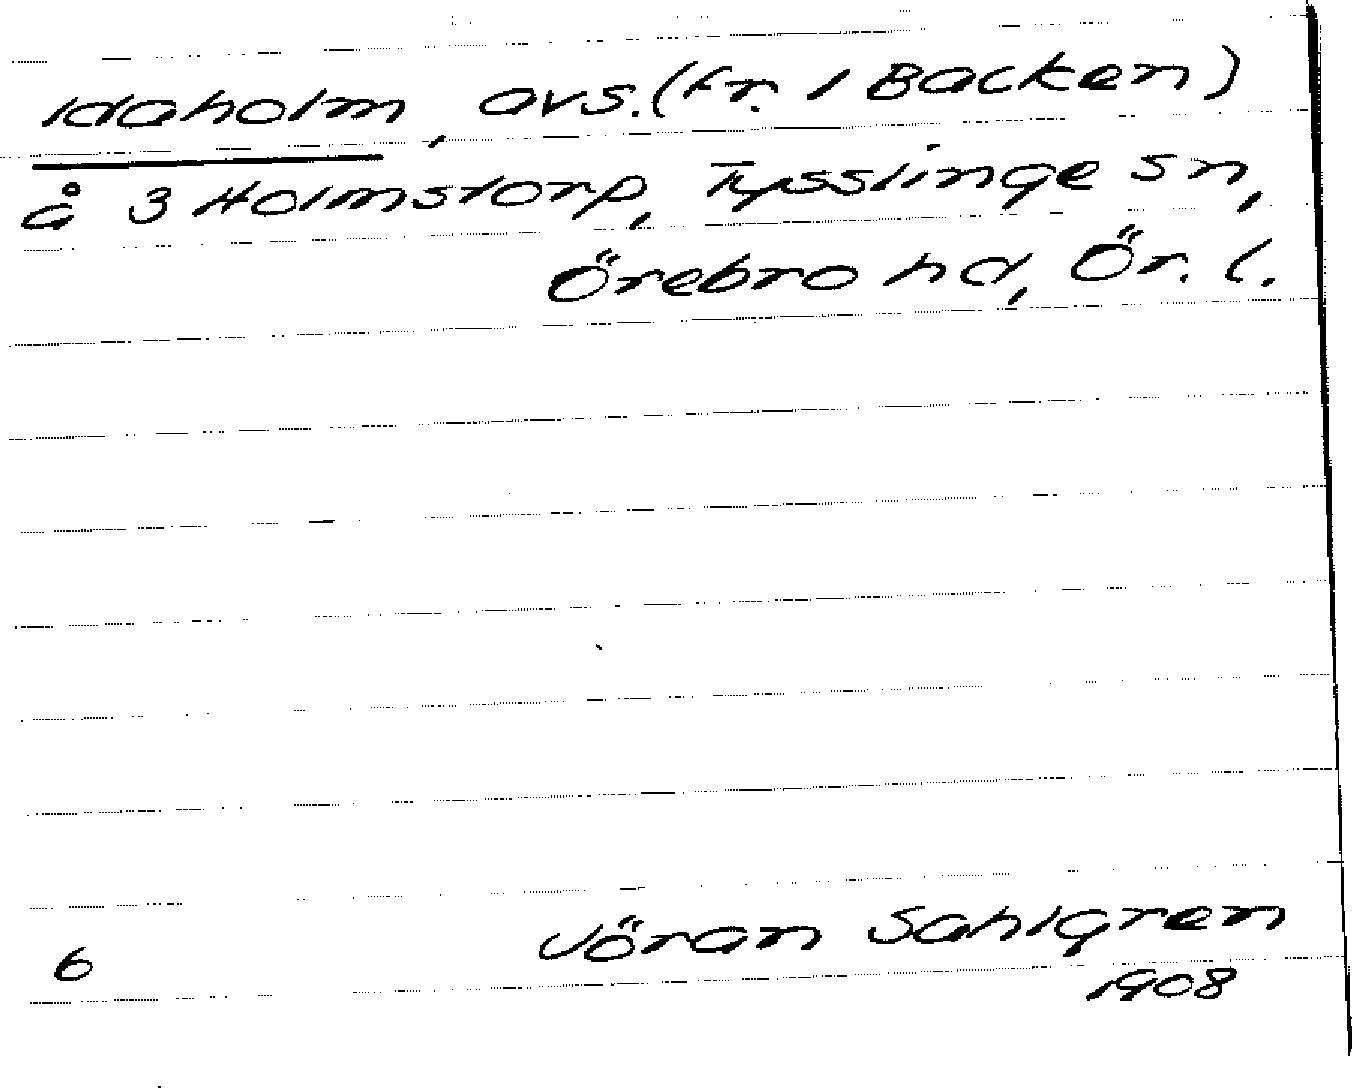 Idaholm, avs. (fr. 1 Backen)
å 3 Holmstorp, Tysslinge sn,
Örebro hd, Ör. l.
Jöran Sahlgren
6
1908